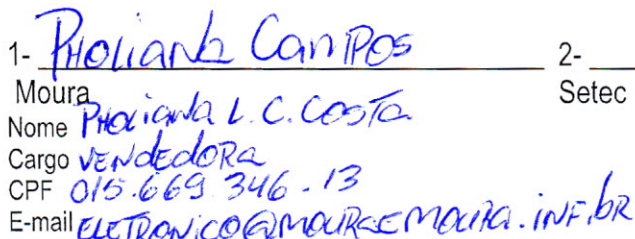 1- Pholiana Campos 2-
Moura Setec
Nome Pholiana L. C. Costa
Cargo VENDEDORA
CPF 015.669.346-13
E-mail ELETRONICO@MOURAEMOURA.INF.BR